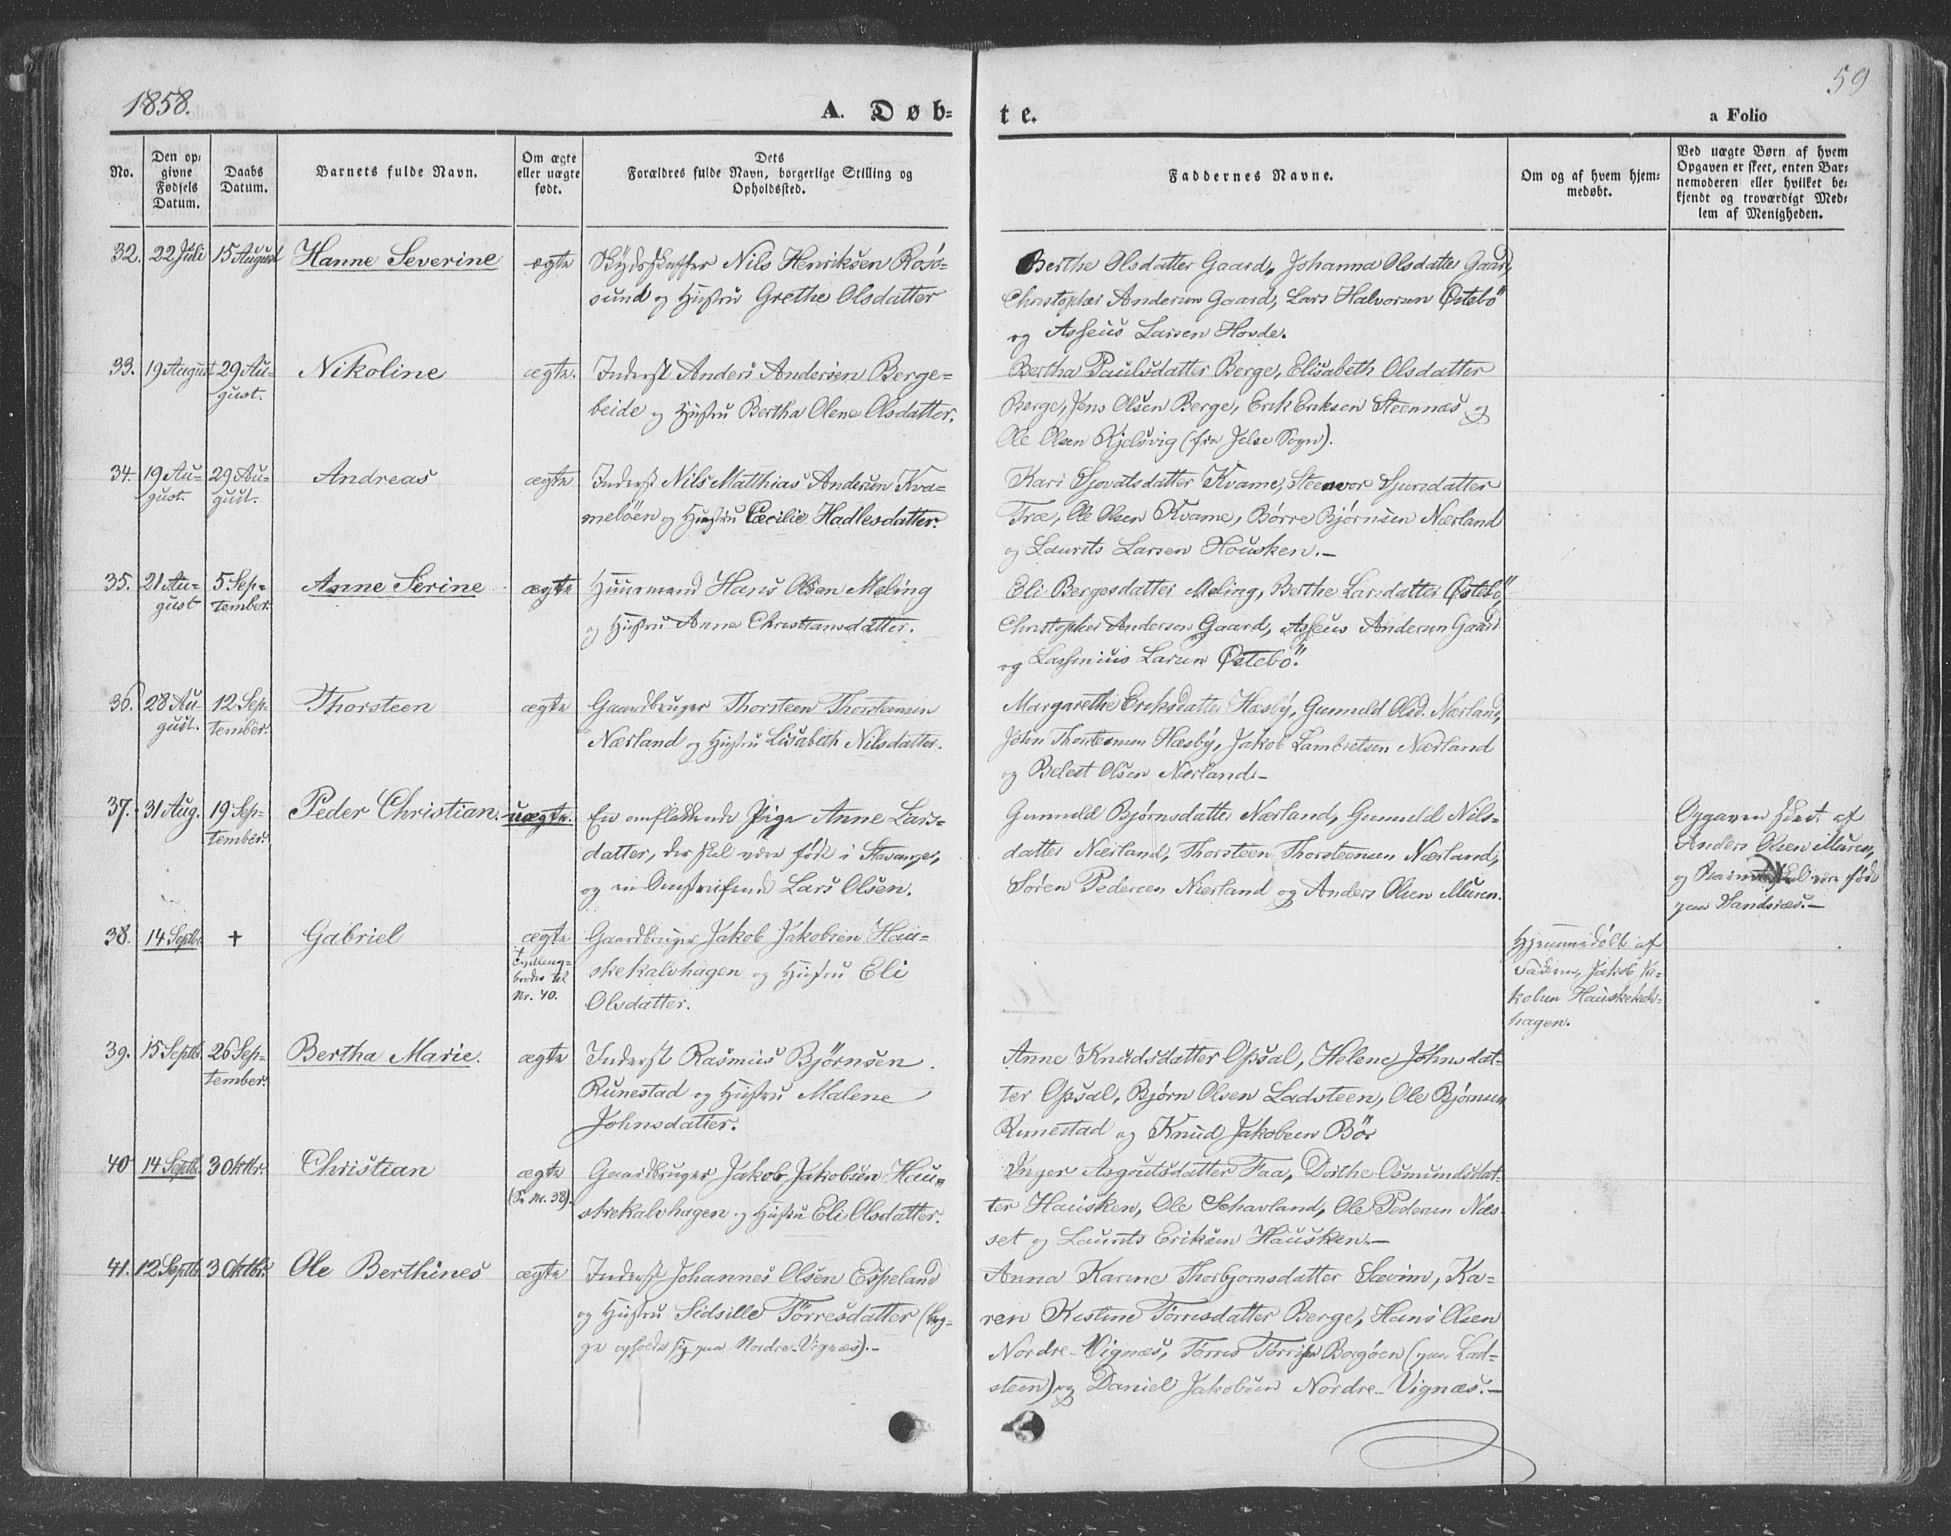 1858.
A. Døb-
te.
59
a Folio
No.
Den op-
givne
Fødsels
Datum.
Daabs
Datum.
Barnets fulde Navn.
Om ægte
eller uægte
født.
Dets
Forældres fulde Navn, borgerlige Stilling og
Opholdssted.
Faddernes Navne.
Om og af hvem hjem-
medøbt.
Ved uægte Børn af hvem
Opgaven er skeet, enten Bar-
nemoderen eller hvilket be-
kjendt og troværdigt Med-
lem af Menigheden.
32. 22 Juli 15 August Hanne Severine ægte Skydsskaffer Nils Henriksen Røsö-
sund og Hustru Grethe Olsdatter
Berthe Olsdatter Gaard, Johanna Olsdatter Gaard,
Christopher Andersen Gaard, Lars Halvorsen Østebö
og Asseus Larsen Hovde.
33. 19 August 29 Au-
gust. Nikoline ægte. Inderst Anders Andersen Berge-
beide og Hustru Bertha Olene Olsdatter.
Bertha Paulsdatter Berge, Elisabeth Olsdatter
Berge, Jens Olsen Berge, Erik Eriksen Steennæs og
Ole Olsen Kjelsvig (fra Jelse Sogn).
34. 19 Au-
gust. 29 Au-
gust. Andreas ægte Inderst Nils Matthias Andersen Kva-
meböen og Hustru Cæcilie Hadlesdatter.
Kari Sjovatsdatter Kvame, Steenvor Sjursdatter
Træ, Ole Olsen Kvame, Børre Bjørnsen Nærland
og Laurits Larsen Housken.-
35. 21 Au-
gust 5 Sep-
tember. Anne Serine ægte Huusmand Hans Olsen Meling
og Hustru Anne Christiansdatter.
Eli Bergesdatter Meling, Berthe Larsdatter Østebö,
Christopher Andersen Gaard, Asseus Andersen Gaard
og Lassenius Larsen Østebö.
36. 28 Au-
gust. 12 Sep-
tember. Thorsteen ægte Gaardbruger Thorsteen Thorsteensen
Nærland og Hustru Lisabeth Nilsdatter.
Margarethe Eriksdatter Hæsby, Gunneld Olsd. Nærland,
John Thorsteensen Hæsby, Jakob Lambretsen Nærland
og Belest Olsen Nærland-
37. 31 Aug. 19 Sep-
tember. Peder Christian. uægte. En omflakkende Pige Anne Lars-
datter, der skal være født i Stavanger,
og en Omstreifende Lars Olsen.
Gunneld Bjørnsdatter Nærland, Gunneld Nils-
datter Nærland, Thorsteen Thorsteensen Nærland,
Søren Pedersen Nærland og Anders Olsen Muren.
Opgaven skeet af
Anders Olsen Muren,
og Barnet skal være født
paa Sandnæs.-
38. 14 Septb. + Gabriel ægte
Tvilling-
broder til
Nr. 40. Gaardbruger Jakob Jakobsen Hau-
skekalvhagen og Hustru Eli
Olsdatter.
Hjemmedöbt af
Faderen, Jakob Ja-
kobsen Hauskekalv-
hagen.
39. 15 Septb. 26 Sep-
tember. Bertha Marie. ægte Inderst Rasmus Bjørnsen
Runestad og Hustru Malene
Johnsdatter.
Anne Knudsdatter Opsal, Helene Johnsdat-
ter Opsal, Bjørn Olsen Ladsteen, Ole Bjørnsen
Runestad og Knud Jakobsen Bör
40 14 Septb. 3 Oktbr. Christian ægte
(Se Nr. 38). Gaardbruger Jakob Jakobsen Hau-
skekalvhagen og Hustru Eli Olsdatter.
Inger Asgoutsdatter Faa, Dorthe Osmundsdat-
ter Hausken, Ole Schavland, Ole Pedersen Næs-
set og Laurits Eriksen Hausken.-
41. 12 Septb. 3 Oktbr. Ole Berthines ægte Inderst Johannes Olsen Espeland
og Hustru Sidsille Törresdatter (beg-
ge opholde sig paa Nordre-Vignæs).-
Anna Karine Thorbjornsdatter Sævim, Ka-
ren Kistine Törrisdatter Berge, Hans Olsen
Nordre-Vignæs, Törris Törrisen Borgøen (paa Lad-
steen) og Daniel Jakobsen Nordre-Vignæs.-